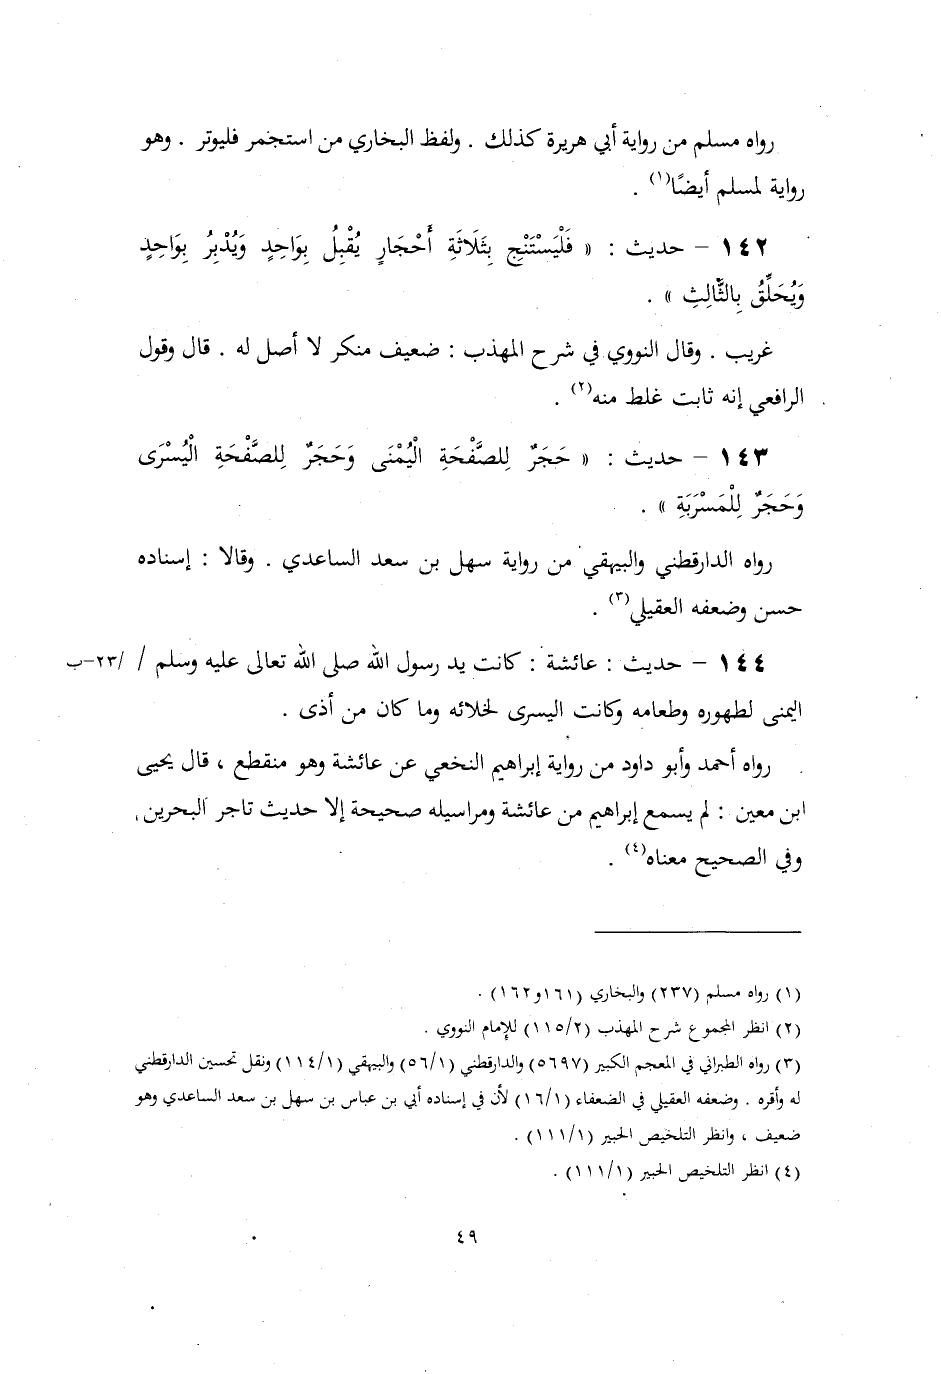 رواه مسلم من رواية أبي هريرة كذلك . ولفظ البخاري من استجمر فليوتر . وهو
رواية لمسلم أيضًا(١) .
١٤٢ – حديث : « فَلْيَسْتَنْجِ بِثَلَاثَةِ أَحْجَارٍ يُقْبِلُ بِوَاحِدٍ وَيُدْبِرُ بِوَاحِدٍ
وَيُحَلِّقُ بِالثَّالِثِ » .
غريب . وقال النووي في شرح المهذب : ضعيف منكر لا أصل له . قال وقول
الرافعي إنه ثابت غلط منه(٢) .
١٤٣ – حديث : « حَجَرٌ لِلصَّفْحَةِ الْيُمْنَى وَحَجَرٌ لِلصَّفْحَةِ الْيُسْرَى
وَحَجَرٌ لِلْمَسْرَبَةِ » .
رواه الدارقطني والبيهقي من رواية سهل بن سعد الساعدي . وقالا : إسناده
حسن وضعفه العقيلي(٣) .
١٤٤ – حديث : عائشة : كانت يد رسول الله صلى الله تعالى عليه وسلم / /٢٣-ب
اليمنى لطهوره وطعامه وكانت اليسرى لخلائه وما كان من أذى .
رواه أحمد وأبو داود من رواية إبراهيم النخعي عن عائشة وهو منقطع ، قال يحيى
ابن معين : لم يسمع إبراهيم من عائشة ومراسيله صحيحة إلا حديث تاجر البحرين ,
وفي الصحيح معناه(٤) .
(١) رواه مسلم (٢٣٧) والبخاري (١٦١و١٦٢) .
(٢) انظر المجموع شرح المهذب (١١٥/٢) للإمام النووي .
(٣) رواه الطبراني في المعجم الكبير (٥٦٩٧) والدارقطني (٥٦/١) والبيهقي (١١٤/١) ونقل تحسين الدارقطني
له وأقره . وضعفه العقيلي في الضعفاء (١٦/١) لأن في إسناده أبي بن عباس بن سهل بن سعد الساعدي وهو
ضعيف ، وانظر التلخيص الحبير (١١١/١) .
(٤) انظر التلخيص الحبير (١١١/١) .
٤٩